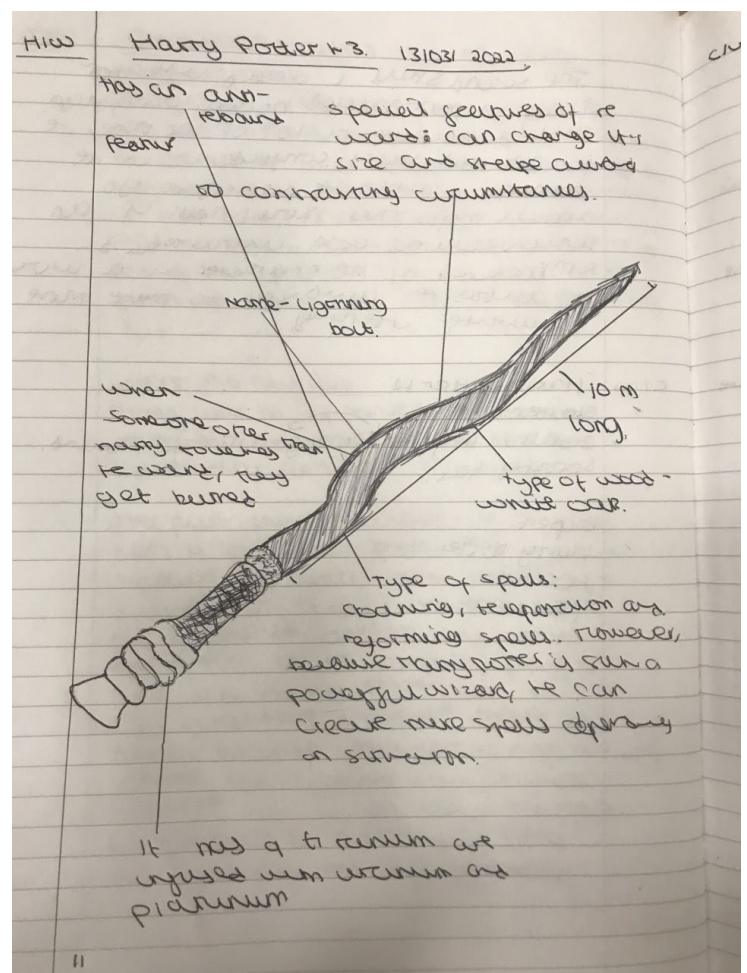 H/W
Harry Potter h3. 13/03/ 2022
C/W
Has an anti-
rebound
feature
special features of the
wand: can change its
size and shape
to contrasting circumstances.
Name - Lightning
bolt.
When
someone other than
harry touches
the wand, they
get burned
10 m
long.
type of wood -
white oak.
Type of spells:
cloaning, teleportation and
reforming spells. However,
because Harry Potter is such a
powerful wizard, he can
create more spells depending
on situation.
It has a titanium
infused with uranium and
platinum
11